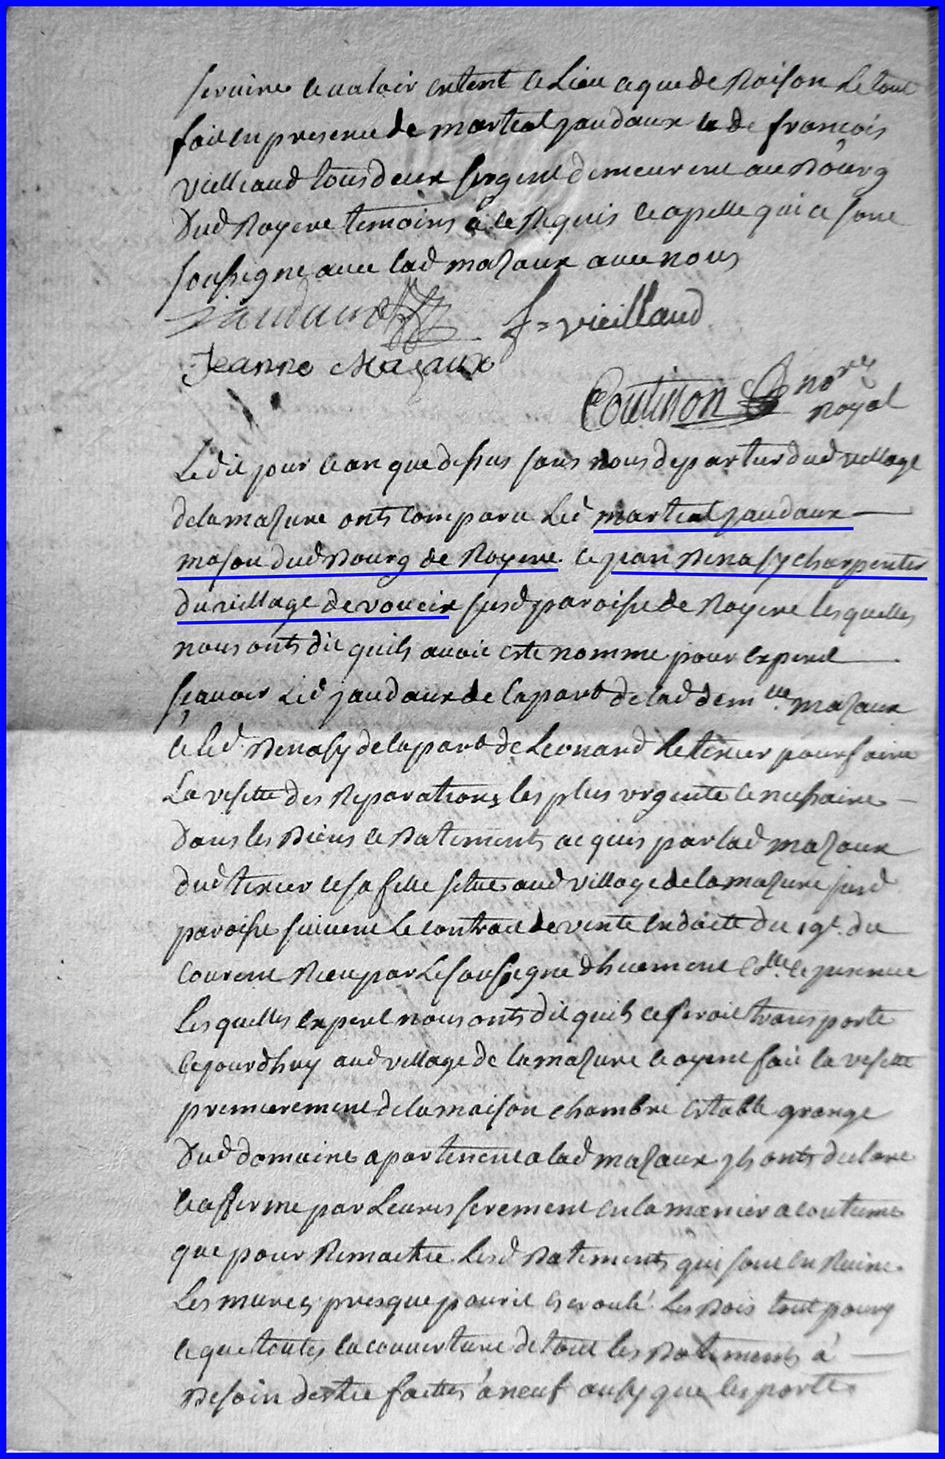 servire et valoir en tent et Lieu et que de Raison Le tout
fait en presence de martial jaudaux et de francois
vielliaud tous deux sergent demeurent au Bourg
dud Royere temoins à ce Requis et apelle qui ce sont
soussigne avec lad mazaux avec nous
jaudaux f= vieillaud
Jeanne Mazaux
Coutisson nore
Royal
Ledit jour et an que dessus sans nous departir dud village
de la mazure onts comparu Led martial jaudaux
mason dud Bourg de Royere et jean Benassy charpentier
du village de voueix susd paroisse de Royere lesquelles
nous onts dit quils avoit este nomme pour expert
sçavoir Led jaudaux de la part de lad demlle mazaux
et led Benassy de la part de Leonard Letixier pour faire
La visitte des Reparations les plus urgente et nessaire
dans les Biens et Batiments acquis par lad mazaux
dud texier et sa fille situe aud village de la mazure susd
paroisse suivent Le contrat de vente en datte du 19e du
courent Recu par Le soussigne dhuement
Lesquelles expert nous onts dit quils ce seroit transporte
cejourdhuy aud village de la mazure et ayent fait la visitte
premierement de la maison chambre etable grange
dud domaine apartenent a lad mazaux ils onts declare
et afferme par Leures serement en la manier acoutume
que pour Remaitre Lesd Batiments qui sont en Ruine
Les mures presque pourit et croulé Les Bois tout poury
et que toutes la couverture de tout les Batiments à
Besoin destre faittes à neuf ausy que les porte